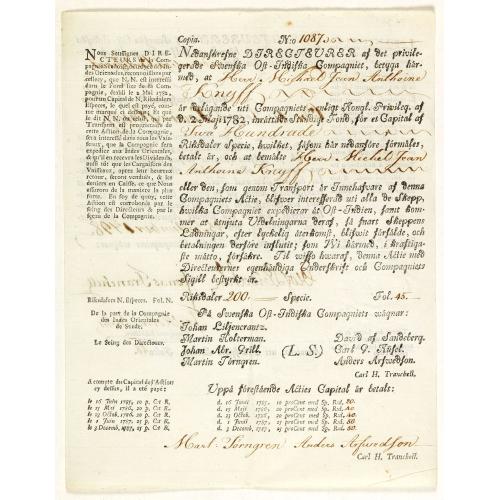 Copia. N:o 1087.
Nous Soussignés DIRE-
CTEURS de la Com-
pagnie
Orientales, reconnoissons par
cellecy, que N. N. est interessé
dans le Fond fixe de la Com-
pagnie, établi le 2 Maj 1782,
pour un Capital de N. Riksdalers
Especes, le quel est payé,
marqué ci dessous, & que
dit N. N.
Transport est proprietaire de
cette Action de la Compagnie,
sera interessé dans tous les Vais-
seaux, que la Compagnie sera
expedier aux Indes Orientales,
& qu'il en recevra les Dividends,
aussi tôt que les Cargaisons des
Vaisseaux, après leur heureux
retour, seront vendues, & les
deniers en Caisse, ce que Nous
assurons de la maniere la plus
forte. En foy de quoy, cette
Action est corroborée par le
Seing des Directeurs & par le
Sçeau de la Compagnie.
Riksdalers N. Especes. Fol. N.
De la part de la Compagnie
des Indes Orientales
de Suede.
Le Seing des Directeurs.
A compte du Capital de l'Action
cy dessus, il a eté payé:
le 16 Juin 1785, 20 p. Ct R.
le 15 Maj 1786, 20 p. Ct R.
le 23 Octob. 1786, 20 p. Ct R.
le 1 Juin 1787, 25 p. Ct R.
le 3 Decemb. 1787, 25 p. Ct R.
Nedanskrefne DIRECTEURER af det privile-
gerade Swenska Ost-Indiska Compagniet, betyga här-
med, at Herr Michael Jean Anthoine
Knyff
är delägande uti Compagniets enligt Kongl. Privileg. af
d. 2 Maji 1782, inrättade ständige Fond, för et Capital af
Twå Hundrade
Riksdaler Specie, hwilket, såsom här nedanföre förmäles,
betalt är, och at bemälte Herr Michel Jean
Anthoine Knyff
eller den, som genom Transport är Innehafware af denna
Compagniets Actie, blifwer interesserad uti alla de Skepp,
hwilka Compagniet expedierar åt Ost-Indien, samt kom-
mer at åtniuta Utdelningarna deraf, så snart Skeppens
Ladningar, efter lyckelig återkomst, blifwit försålde, och
betalningen derföre influtit; som Wi härmed, i kraftiga-
ste måtto, försäkre. Til wisso hwaraf, denna Actie med
Directeurernes egenhändiga Underskrift och Compagniets
Sigill bestyrkt är.
Riksdaler 200. Specie. Fol. 45.
På Swenska Ost-Indiska Compagniets wägnar:
Johan Liljencrantz.
Martin Holterman. David af Sandeberg.
Johan Abr. Grill. (L. S.) Carl G. Küsel.
Martin Törngren. Anders Arfwedson.
Carl H. Tranchell.
Uppå förestående Acties Capital är betalt:
d. 16 Junii 1785. 20 proCent med Sp. Rd. 40.
d. 15 Maji 1786. 20 proCent med Sp. Rd. 40.
d. 23 Octob. 1786. 20 proCent med Sp. Rd. 40.
d. 1 Junii 1787. 25 proCent med Sp. Rd. 50.
d. 3 Decemb. 1787. 25 proCent med Sp. Rd. 50.
Mart: Törngren Anders Arfwedson
Carl H. Tranchell.